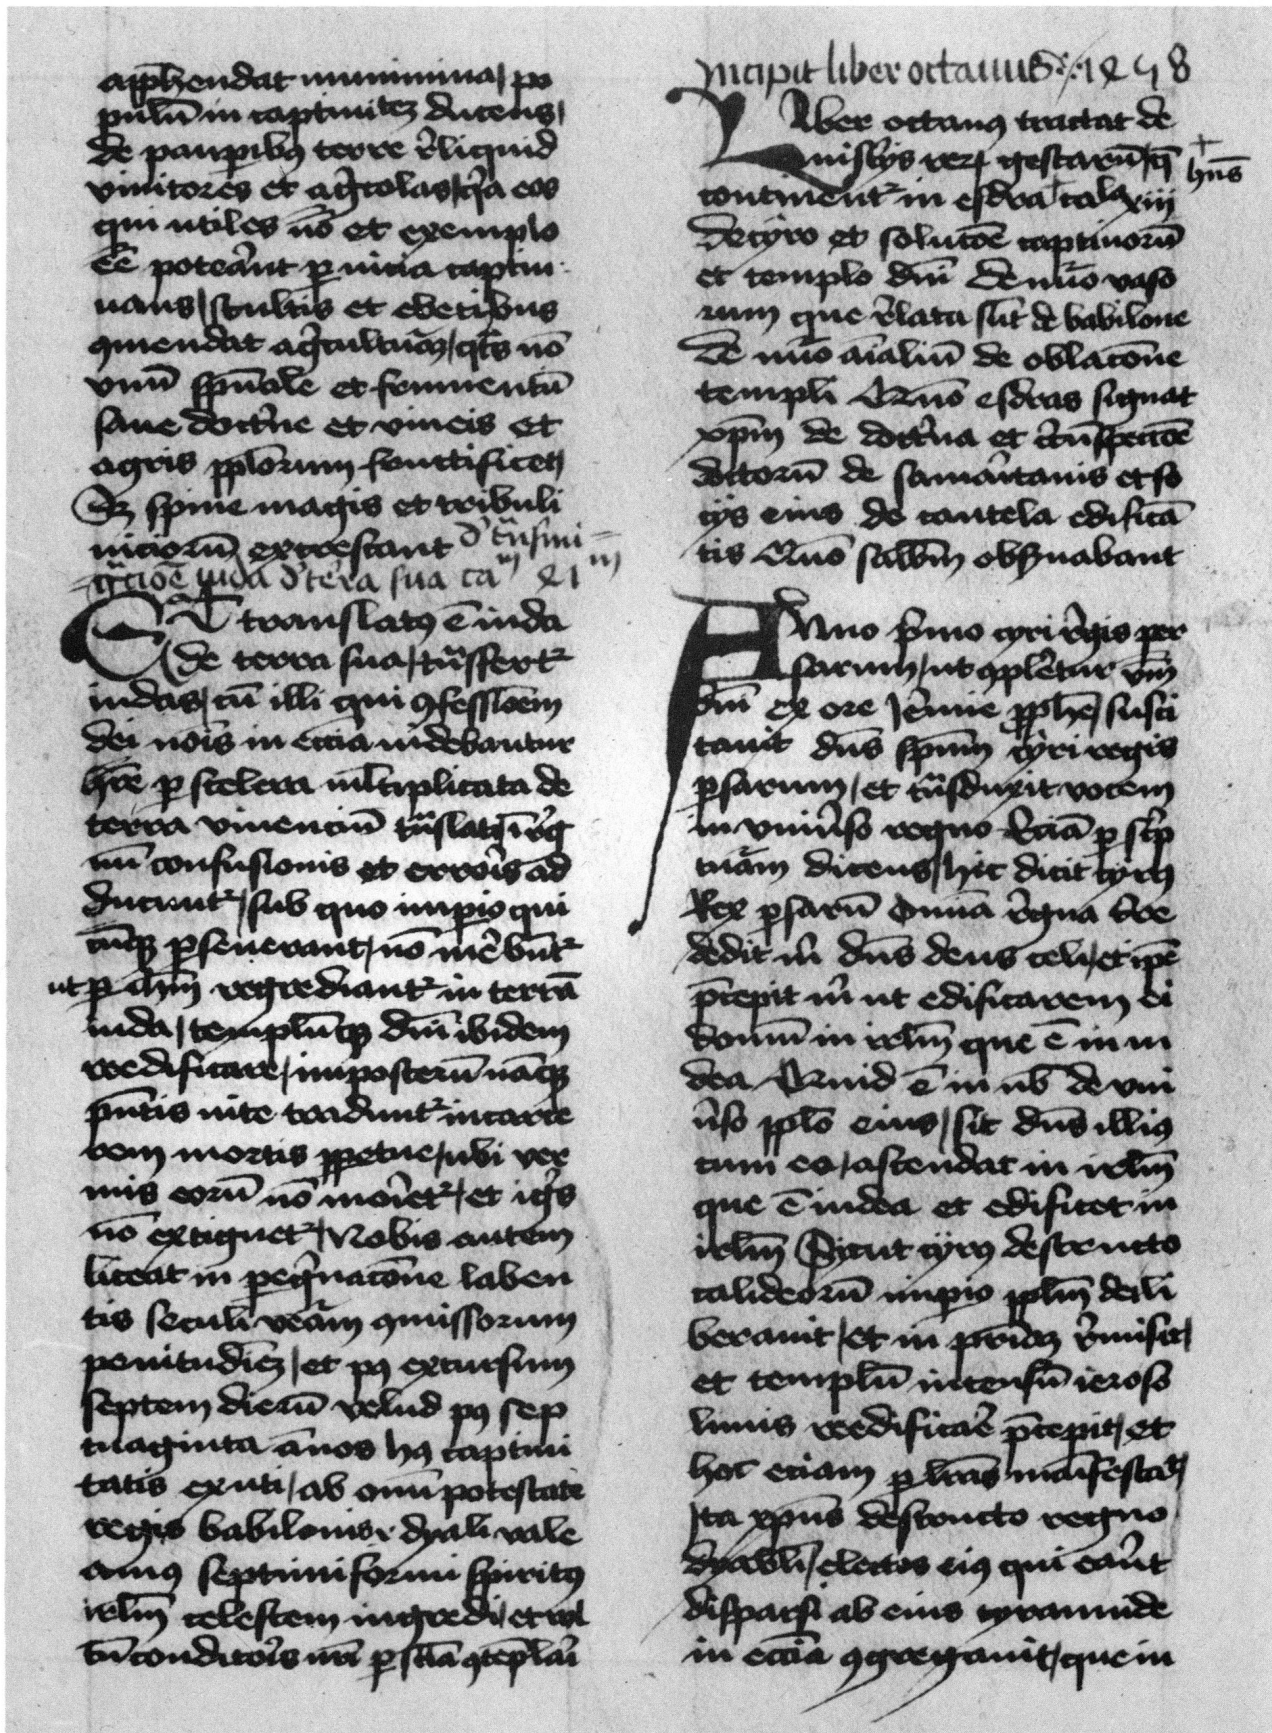 app̄hendat munimina / po
pulū in captiuitꝫ ducens /
de paup̱ibꝯ terre r̄liquid
vinitores et ag̃colas / q̃a eos
qui utiles nō et exemplo
eē poterāt ꝑ uicia captiu
uans / stultis et ebetibus
ꝯmendat ag̃culturāꝫ / nō
vinū sp̄uale et frumentū
sane doctͥne et vineis et
agris pp̄lorum
Sꝫ spine magis et tribuli
uicioꝝ excrescant d' tͣnsmi=
=gͣcioē iuda d' terra sua caᵐ xiᵐ
Et translatꝯ ē iuda
de terra sua / tͣnsfertᷣ
iudas / cū illi qui ꝯfessioēm
dei nōis in eccīa uidebantur
hr̄e ꝑ scelera ml̄tiplicata de
terra viuenciū tͣnslati / ī reg
nū confusionis et erroris ad
ducuntᷣ / sub quo impio qui
cūqꝫ ꝑseuerant / nō mer̄bntᷣ
ut ꝑ ih̄m regrediantᷣ in terrā
iuda / templūqꝫ dn̄i ibidem
reedificare / imposterū nāqꝫ
pn̄tis uite tradūtᷣ in carce
rem mortis ꝑpetue / ubi ver
mis eorū nō morietᷣ / et ignis
nō extiguetᷣ / Nobis autem
liceat in peg̃nacōne laben
tis seculi veām ꝯmissorum
penitudiēꝫ / et pꝯ excursum
septem dierū velud pꝯ sep
tuaginta ānos hꝯ captiui
tatis exuti / ab omī potestate
regis babilonis dyali vale
amꝯ septimiformi spiritꝯ
irl̄m celestem ingredi / et vul
tū conditoris nr̄i ꝑ scīa ꝯtēplari
Incipit liber octauus 1458
Liber octauꝯ tractat de
misterijs reꝝ gestarū / q̄ + hn̄s
continentᷣ in esdra cala xiii
de cyro et solucōe captiuorū
et templo dn̄i de nūo vaso
rum que r̄lata sūt de babilone
de nūo aīaliū de oblacōne
templi Quō esdras signat
xp̄m de doctͥna et cͥcūspectōe
doctorū de samaritanis et so
cijs eius de cautela edificā
tis Quō sabb̄m obs̄uabant
Anno pͥmo cyri r̄gis per
sarum / ut ꝯpler̄tur v̄m
dn̄i ex ore Jer̄mie ꝓphē / susci
tauit dn̄s sp̄um cyri regis
ꝑsarum / et tͣnsduxit vocem
in vniūso regno eciā ꝑ scͥp
turam dicens / hec dicit cyrꝯ
Rex ꝑsarū Omīa r̄gna tr̄re
dedit m̄ dn̄s deus celi / et ip̄e
p̄cepit m̄ ut edificarem ei
domū in irl̄m que ē in iu
dea Quis ē in ub̄ de vni
ūso pp̄lo eius / sit dn̄s illiꝯ
cum eo / ascendat in irl̄m
que ē iudea et edificet in
irl̄m Sicut cyrꝯ destructo
caldeorū impio pp̄lm dei li
berauit / et in pr̄iāꝫ r̄misit /
et templū incensū ieroso
limis reedificar̄e p̄cepit / et
hoc eciam ꝑ lr̄as manifestat /
Ita xp̄us destructo regno
dyabli / electos eiꝯ qui erāt
disparsi ab eius tyrannide
in eccīa ꝯgregauit / que in